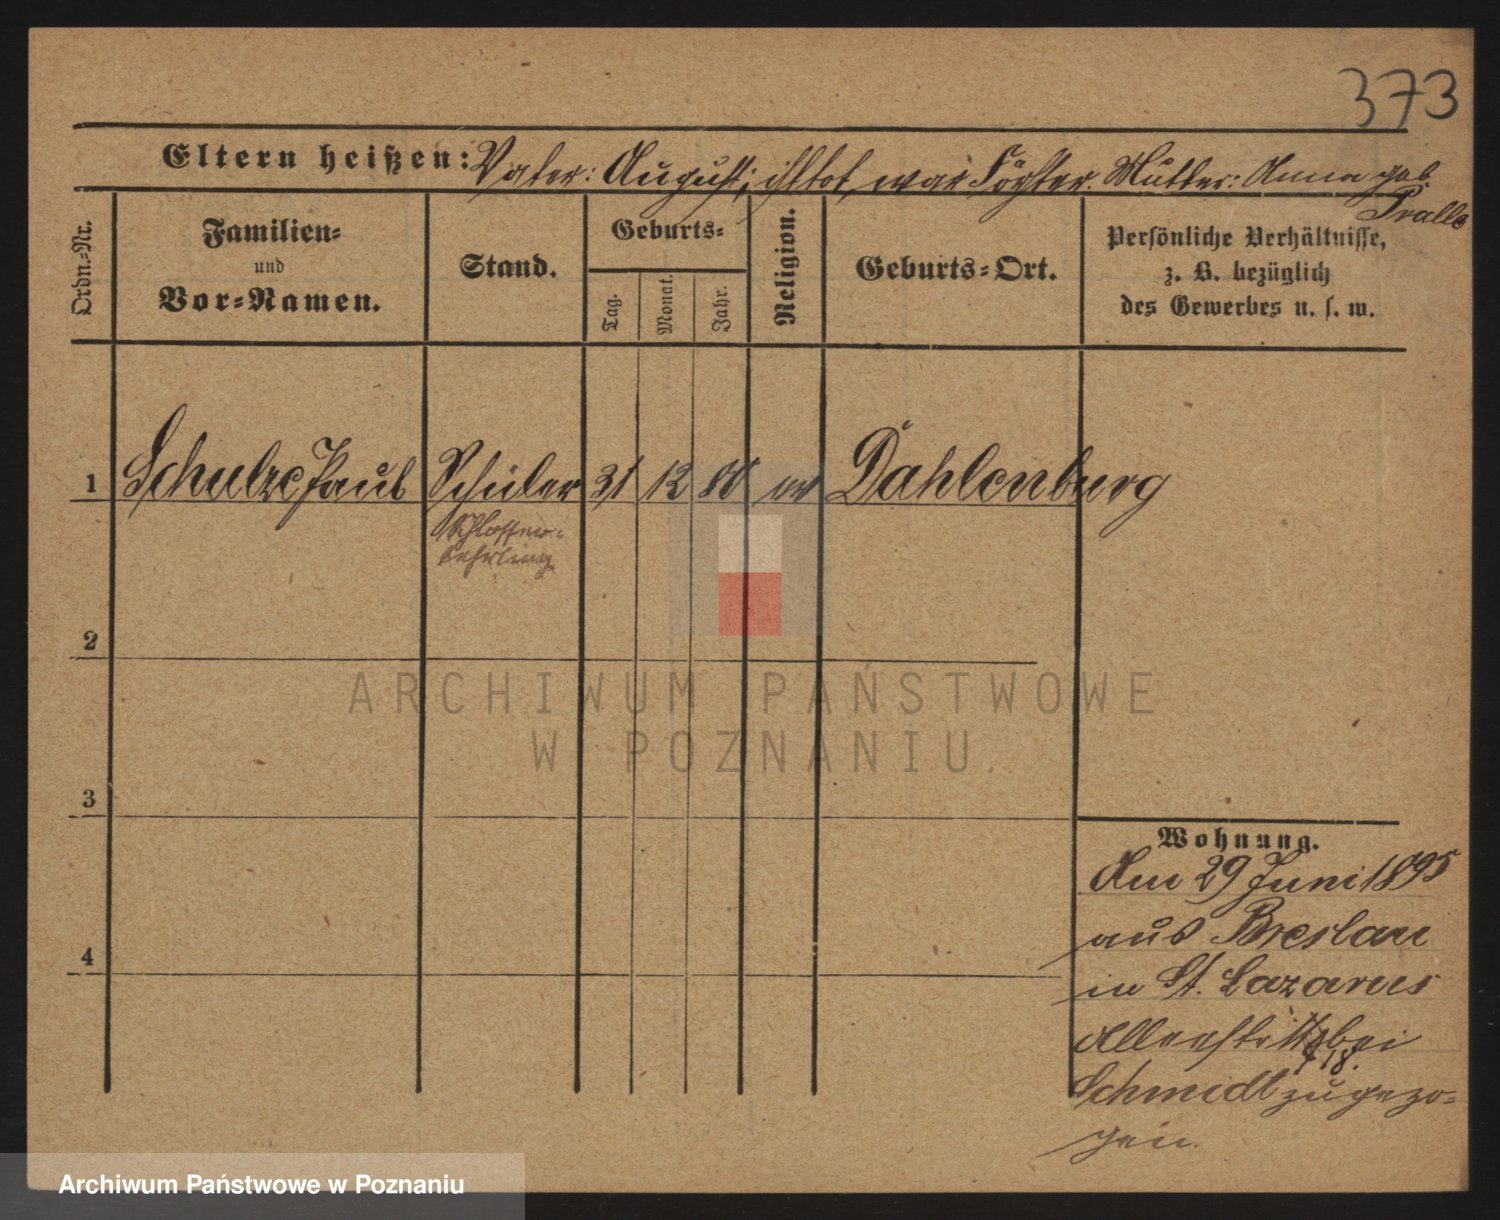 373
Eltern heißen: Vater: August; ist tot, war Förster. Mutter: Anna geb.
Pralle
Ordn.-Nr.
Familien-
und
Vor-Namen.
Stand.
Geburts-
Tag.
Monat.
Jahr.
Religion.
Geburts-Ort.
Persönliche Verhältnisse,
z. B. bezüglich
des Gewerbes u. s. w.
1 Schulze Paul Schüler 31 12 80 ev Dahlenburg
Schlosser-
Lehrling
2
ARCHIWUM PAŃSTWOWE
W POZNANIU
3
Wohnung.
Am 29 Juni 1895
aus Breslau
in St. Lazarus
bei
18.
Schmidt zugezo-
gen.
4
Archiwum Państwowe w Poznaniu